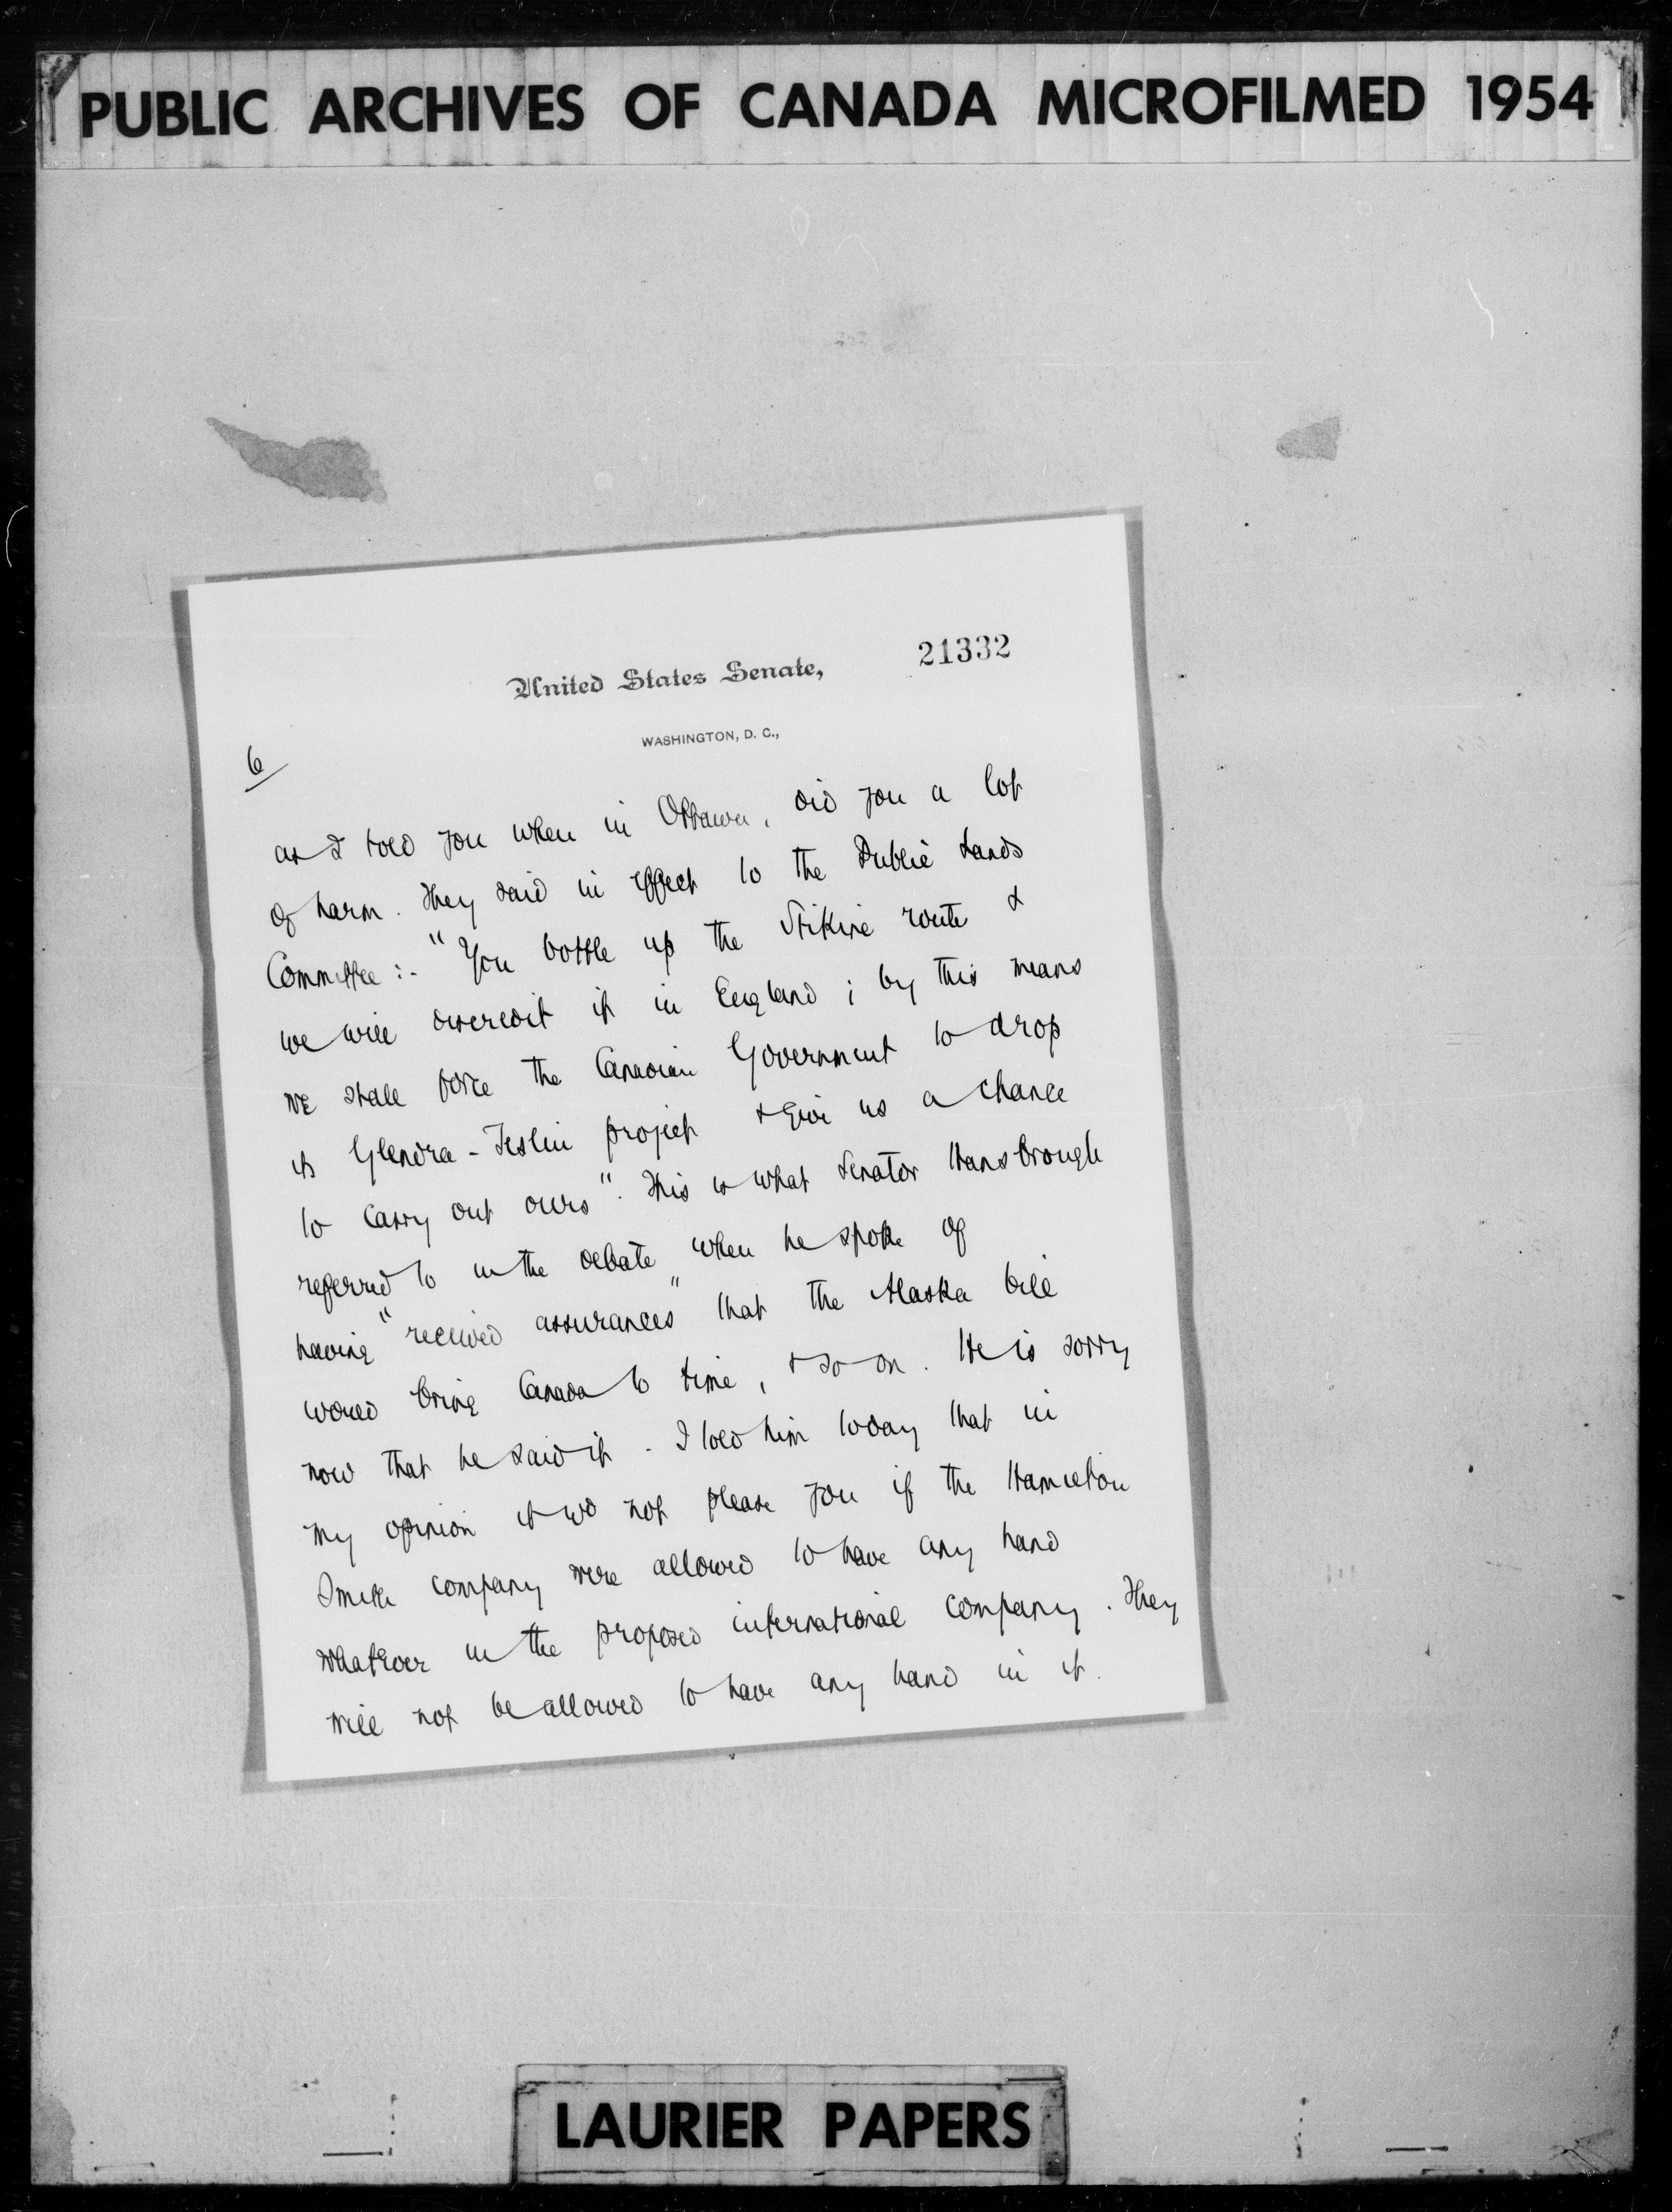 PUBLIC ARCHIVES OF CANADA MICROFILMED 1954
21332
United States Senate,
WASHINGTON, D. C.,
6
as I told you when in Ottawa, did you a lot
of harm. They said in effect to the Public Lands
Committee :- "You bottle up the Stikine route &
we will discredit it in England ; by this means
we shall force the Canadian Government to drop
its Glenora - Teslin project & give us a chance
to carry out ours". This is what Senator Hansbrough
referred to in the debate when he spoke of
having "received assurances" that the Alaska bill
would bring Canada to time, & so on. He is sorry
now that he said it. I told him today that in
my opinion it wd not please you if the Hamilton
Smith company were allowed to have any hand
whatever in the proposed international company. They
will not be allowed to have any hand in it.
LAURIER PAPERS